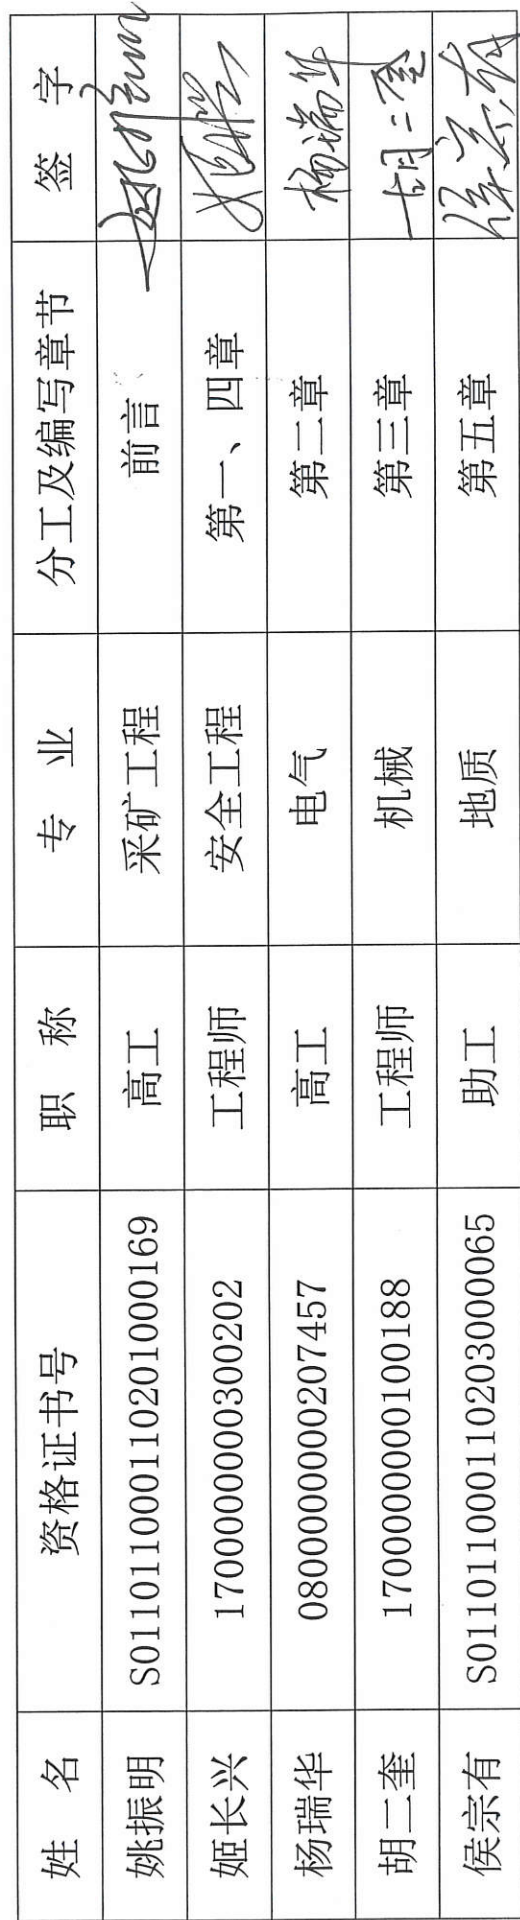 姓 名 资格证书号 职 称 专 业 分工及编写章节 签 字
姚振明 S011011000110201000169 高工 采矿工程 前言 姚振明
姬长兴 1700000000300202 工程师 安全工程 第一、四章
杨瑞华 0800000000207457 高工 电气 第二章 杨瑞华
胡二奎 1700000000100188 工程师 机械 第三章 胡二奎
侯宗有 S011011000110203000065 助工 地质 第五章 侯宗有